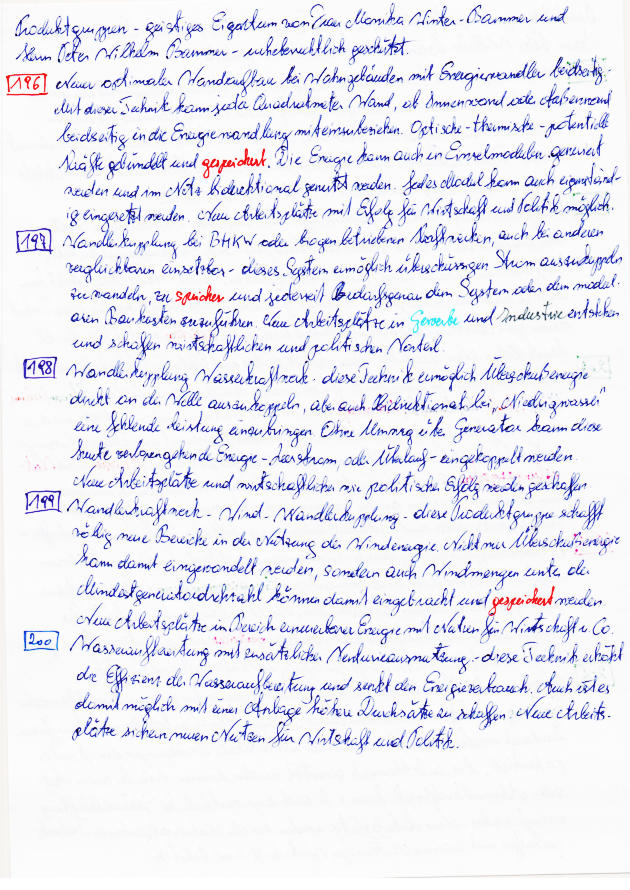 Produktgruppen - geistiges Eigentum von Frau Monika Winter-Bammer und
Herrn Peter Wilhelm Bammer - urheberrechtlich geschützt.
196 Neuer optimaler Wandaufbau bei Wohngebäuden mit Energiewandler beidseitig.
Mit dieser Technik kann jeder Quadratmeter Wand, ob Innenwand oder Außenwand
beidseitig in die Energiewandlung miteinzubeziehen. Optische - thermische - potentielle
Kräfte gebündelt und gespeichert. Die Energie kann auch in Einzelmodulen generiert
werden und im Netz bidirektional genutzt werden. Jedes Modul kann auch eigenständ-
ig eingesetzt werden. Neue Arbeitsplätze mit Erfolg für Wirtschaft und Politik möglich.
197 Wandlerkupplung bei BHKW oder biogen betriebenen Kraftwerken, auch bei anderen
vergleichbaren einsetzbar - dieses System ermöglich überschüssigen Strom auszukuppeln
zu wandeln, zu speichern und jederzeit Bedarfsgenau dem System oder dem modul-
aren Baukasten zuzuführen. Neue Arbeitsplätze in Gewerbe und Industrie entstehen
und schaffen wirtschaftlichen und politischen Vorteil.
198 Wandlerkupplung Wasserkraftwerk - diese Technik ermöglich Überschußenergie
direkt an der Welle auszukuppeln, aber auch Bidirektional bei "Niedrigwasser"
eine fehlende Leistung einzubringen. Ohne Umweg über Generator kann diese
heute verlorengehende Energie - Leerstrom, oder Überlauf - eingekoppelt werden.
Neue Arbeitsplätze und wirtschaftlicher wie politische Erfolg werden geschaffen
199 Wandlerkraftwerk - Wind - Wandlerkupplung - diese Produktgruppe schafft
völlig neue Bereiche in der Nutzung der Windenergie. Nicht nur Überschußenergie
kann damit eingewandelt werden, sondern auch Windmengen unter der
Mindestgeneratordrehzahl können damit eingebracht und gespeichert werden.
Neue Arbeitsplätze in Bereich erneuerbarer Energie mit Nutzen für Wirtschaft u. Co.
200 Wasseraufbereitung mit zusätzlicher Venturieausnutzung - diese Technik erhöht
die Effizienz der Wasseraufbereitung und senkt den Energieverbrauch. Auch ist es
damit möglich mit einer Anlage höhere Durchsätze zu schaffen. Neue Arbeits-
plätze sichern neuen Nutzen für Wirtschaft und Politik.